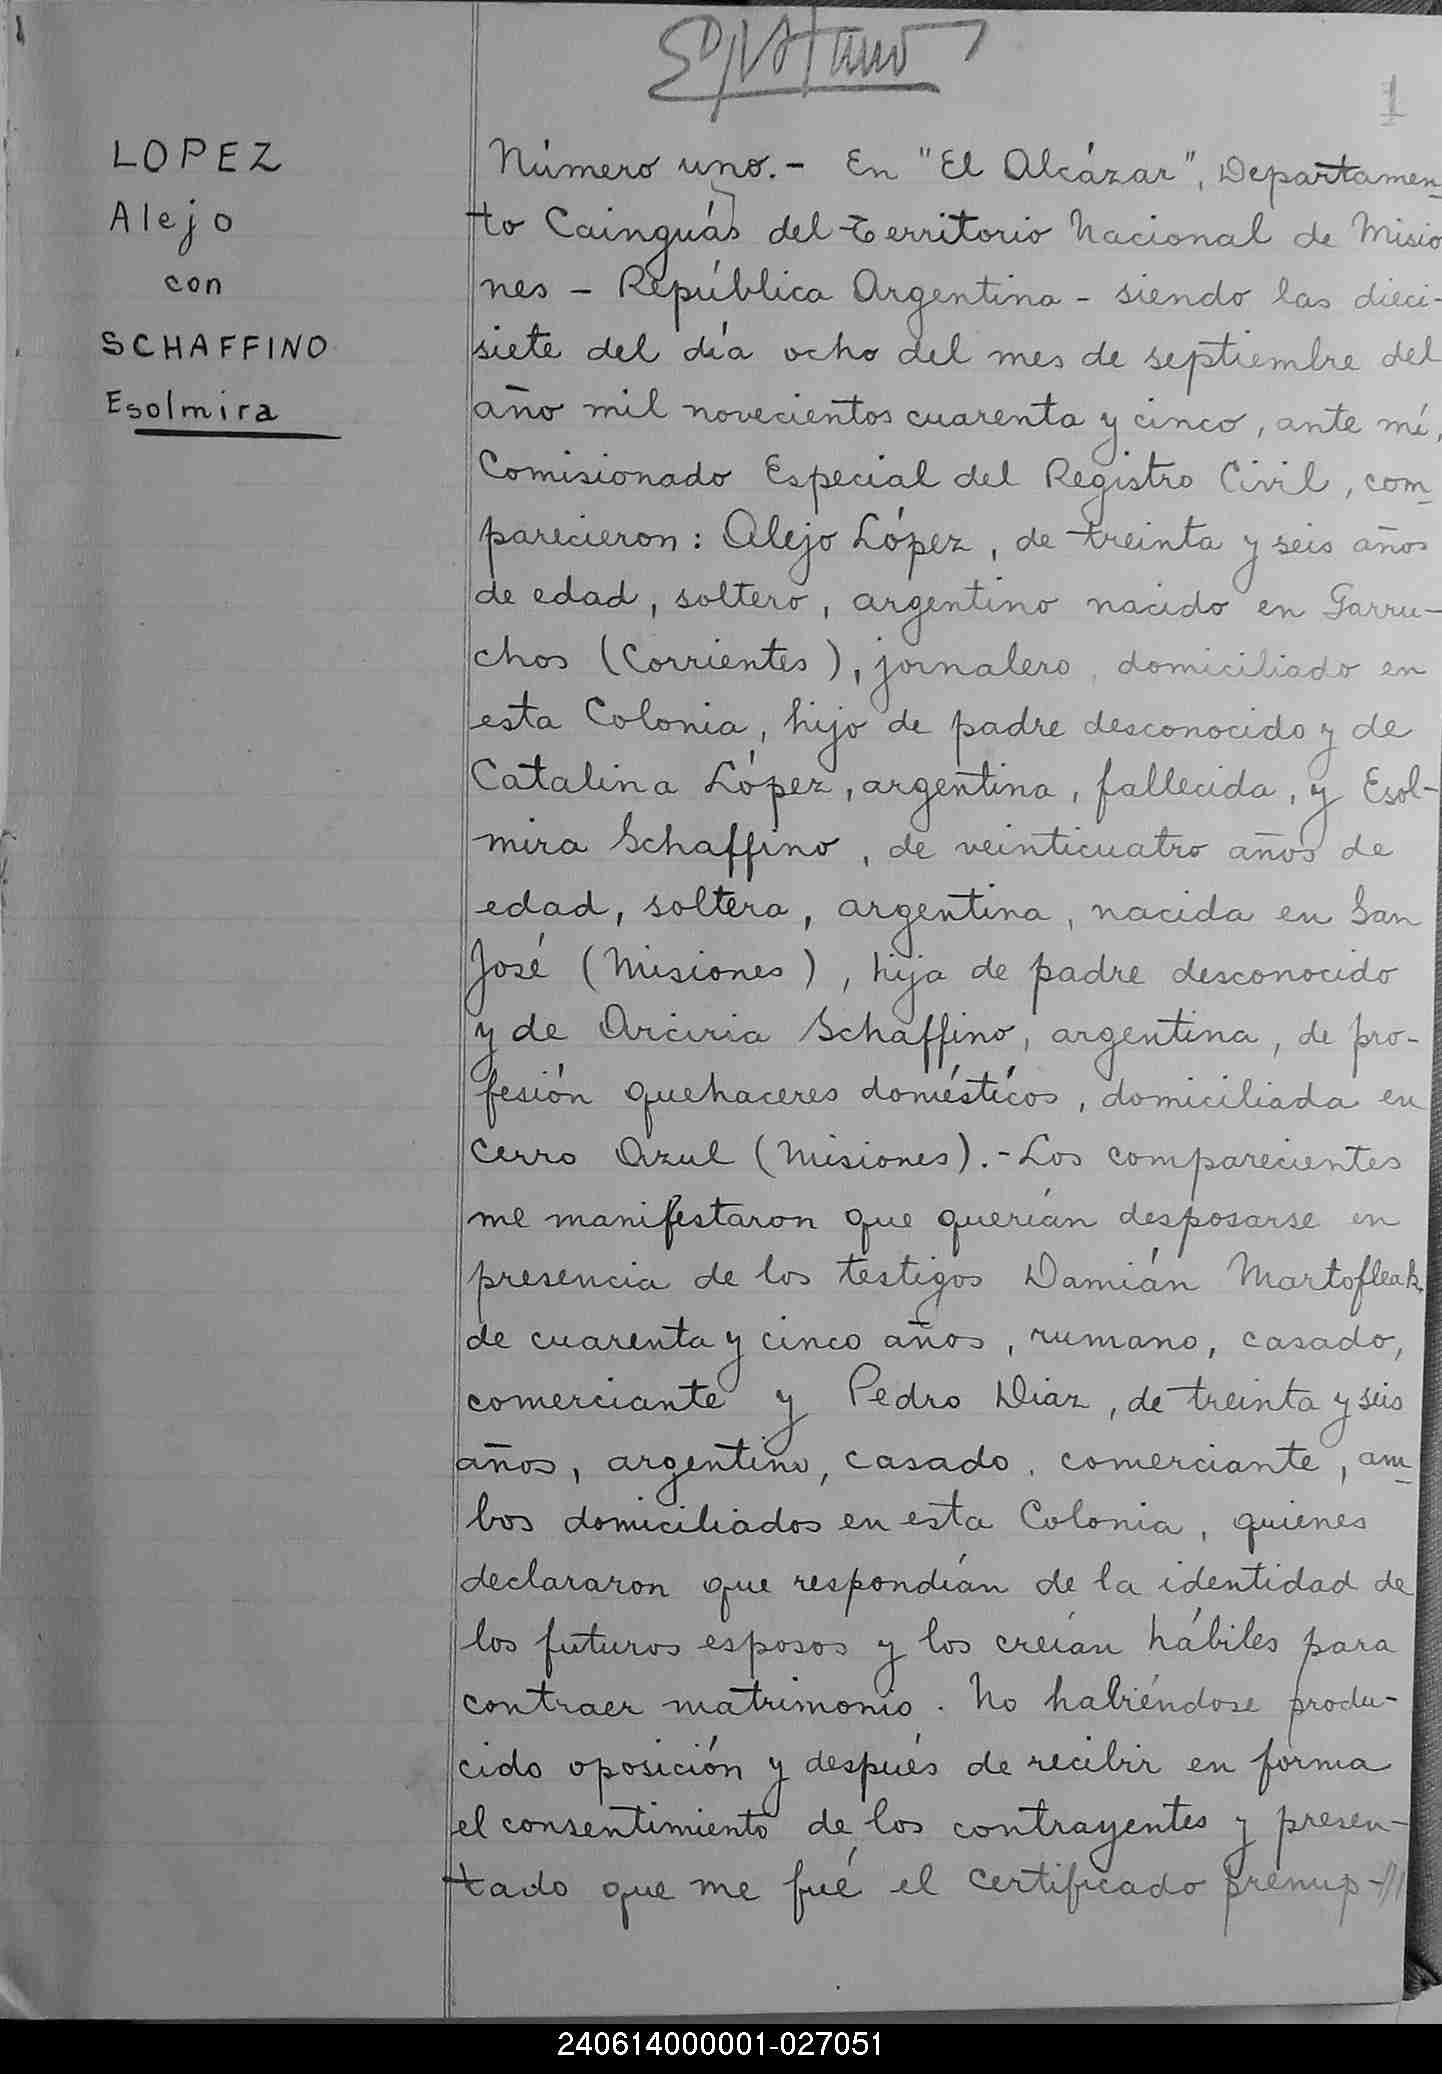 1
LOPEZ
Alejo
con
SCHAFFINO
Esolmira
Número uno.- En "El Alcázar", Departamen-
to Cainguás del territorio Nacional de Misio
nes - República Argentina - siendo las dieci-
siete del día ocho del mes de septiembre del
año mil novecientos cuarenta y cinco, ante mí,
Comisionado Especial del Registro Civil, com-
parecieron: Alejo López, de treinta y seis años
de edad, soltero, argentino nacido en Garru-
chos (Corrientes), jornalero, domiciliado en
esta Colonia, hijo de padre desconocido y de
Catalina López, argentina, fallecida, y Esol-
mira Schaffino, de veinticuatro años de
edad, soltera, argentina, nacida en San
José (Misiones), hija de padre desconocido
y de Arciria Schaffino, argentina, de pro-
fesión quehaceres domésticos, domiciliada en
Cerro Azul (Misiones).- Los comparecientes
me manifestaron que querían desposarse en
presencia de los testigos Damián Martofleak,
de cuarenta y cinco años, rumano, casado,
comerciante y Pedro Diaz, de treinta y seis
años, argentino, casado, comerciante, am-
bos domiciliados en esta Colonia, quienes
declararon que respondían de la identidad de
los futuros esposos y los creían hábiles para
contraer matrimonio. No habiéndose produ-
cido oposición y después de recibir en forma
el consentimiento de los contrayentes y presen-
tado que me fué el certificado prenup-///
240614000001-027051